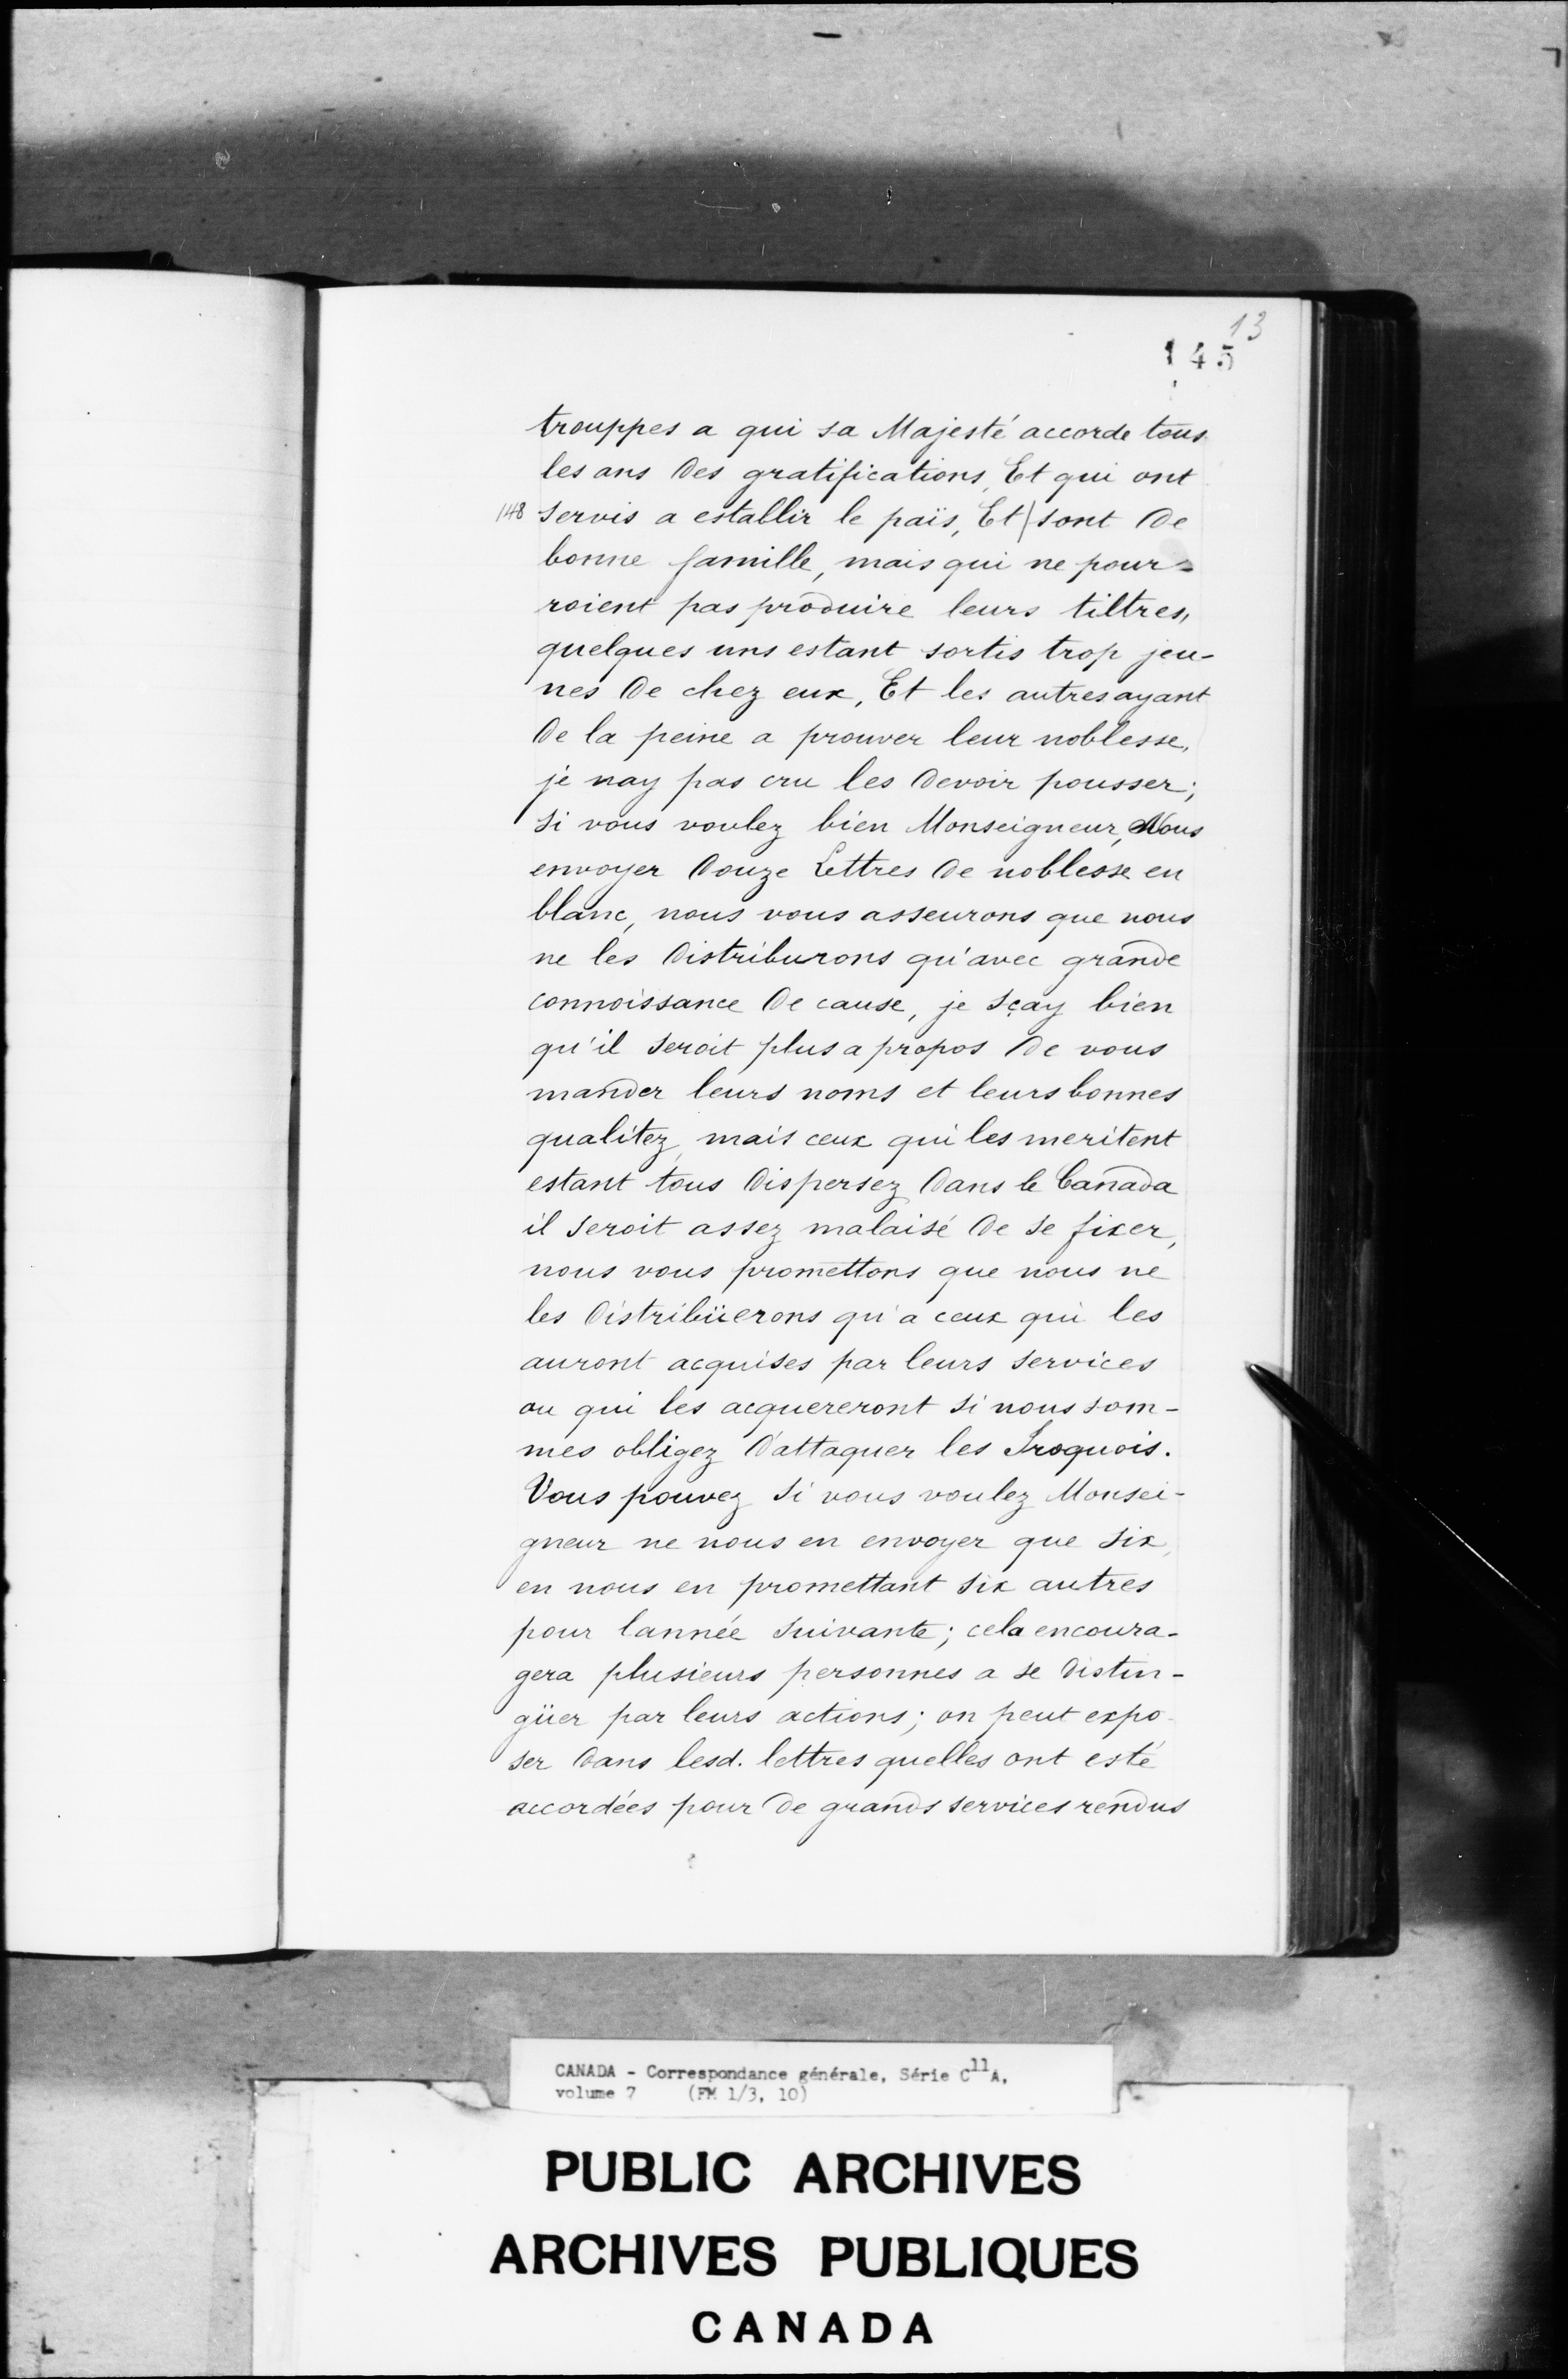 13
145
trouppes a qui sa Majesté accorde tous
les ans des gratifications, Et qui ont
148 servis a establir le païs, Et | sont de
bonne famille, mais qui ne pour-
roient pas produire leurs tiltres,
quelques uns estant sortis trop jeu-
nes de chez eux, Et les autres ayant
de la peine a prouver leur noblesse,
je nay pas cru les devoir pousser;
si vous voulez bien Monseigneur, Nous
envoyer douze Lettres de noblesse en
blanc, nous vous asseurons que nous
ne les distriburons qu'avec grande
connoissance de cause, je sçay bien
qu'il seroit plus a propos de vous
mander leurs noms et leurs bonnes
qualitez, mais ceux qui les meritent
estant tous dispersez dans le Canada
il seroit assez malaisé de se fixer,
nous vous promettons que nous ne
les distribüerons qu'a ceux qui les
auront acquises par leurs services
ou qui les acquereront si nous som-
mes obligez d'attaquer les Iroquois.
Vous pouvez si vous voulez Monsei-
gneur ne nous en envoyer que six,
en nous en promettant six autres
pour lannée suivante; cela encoura-
gera plusieurs personnes a se distin-
güer par leurs actions; on peut expo-
ser dans lesd. lettres quelles ont esté
accordées pour de grands services rendus
CANADA - Correspondance générale, Série C11A,
volume 7 (FM 1/3, 10)
PUBLIC ARCHIVES
ARCHIVES PUBLIQUES
CANADA
L